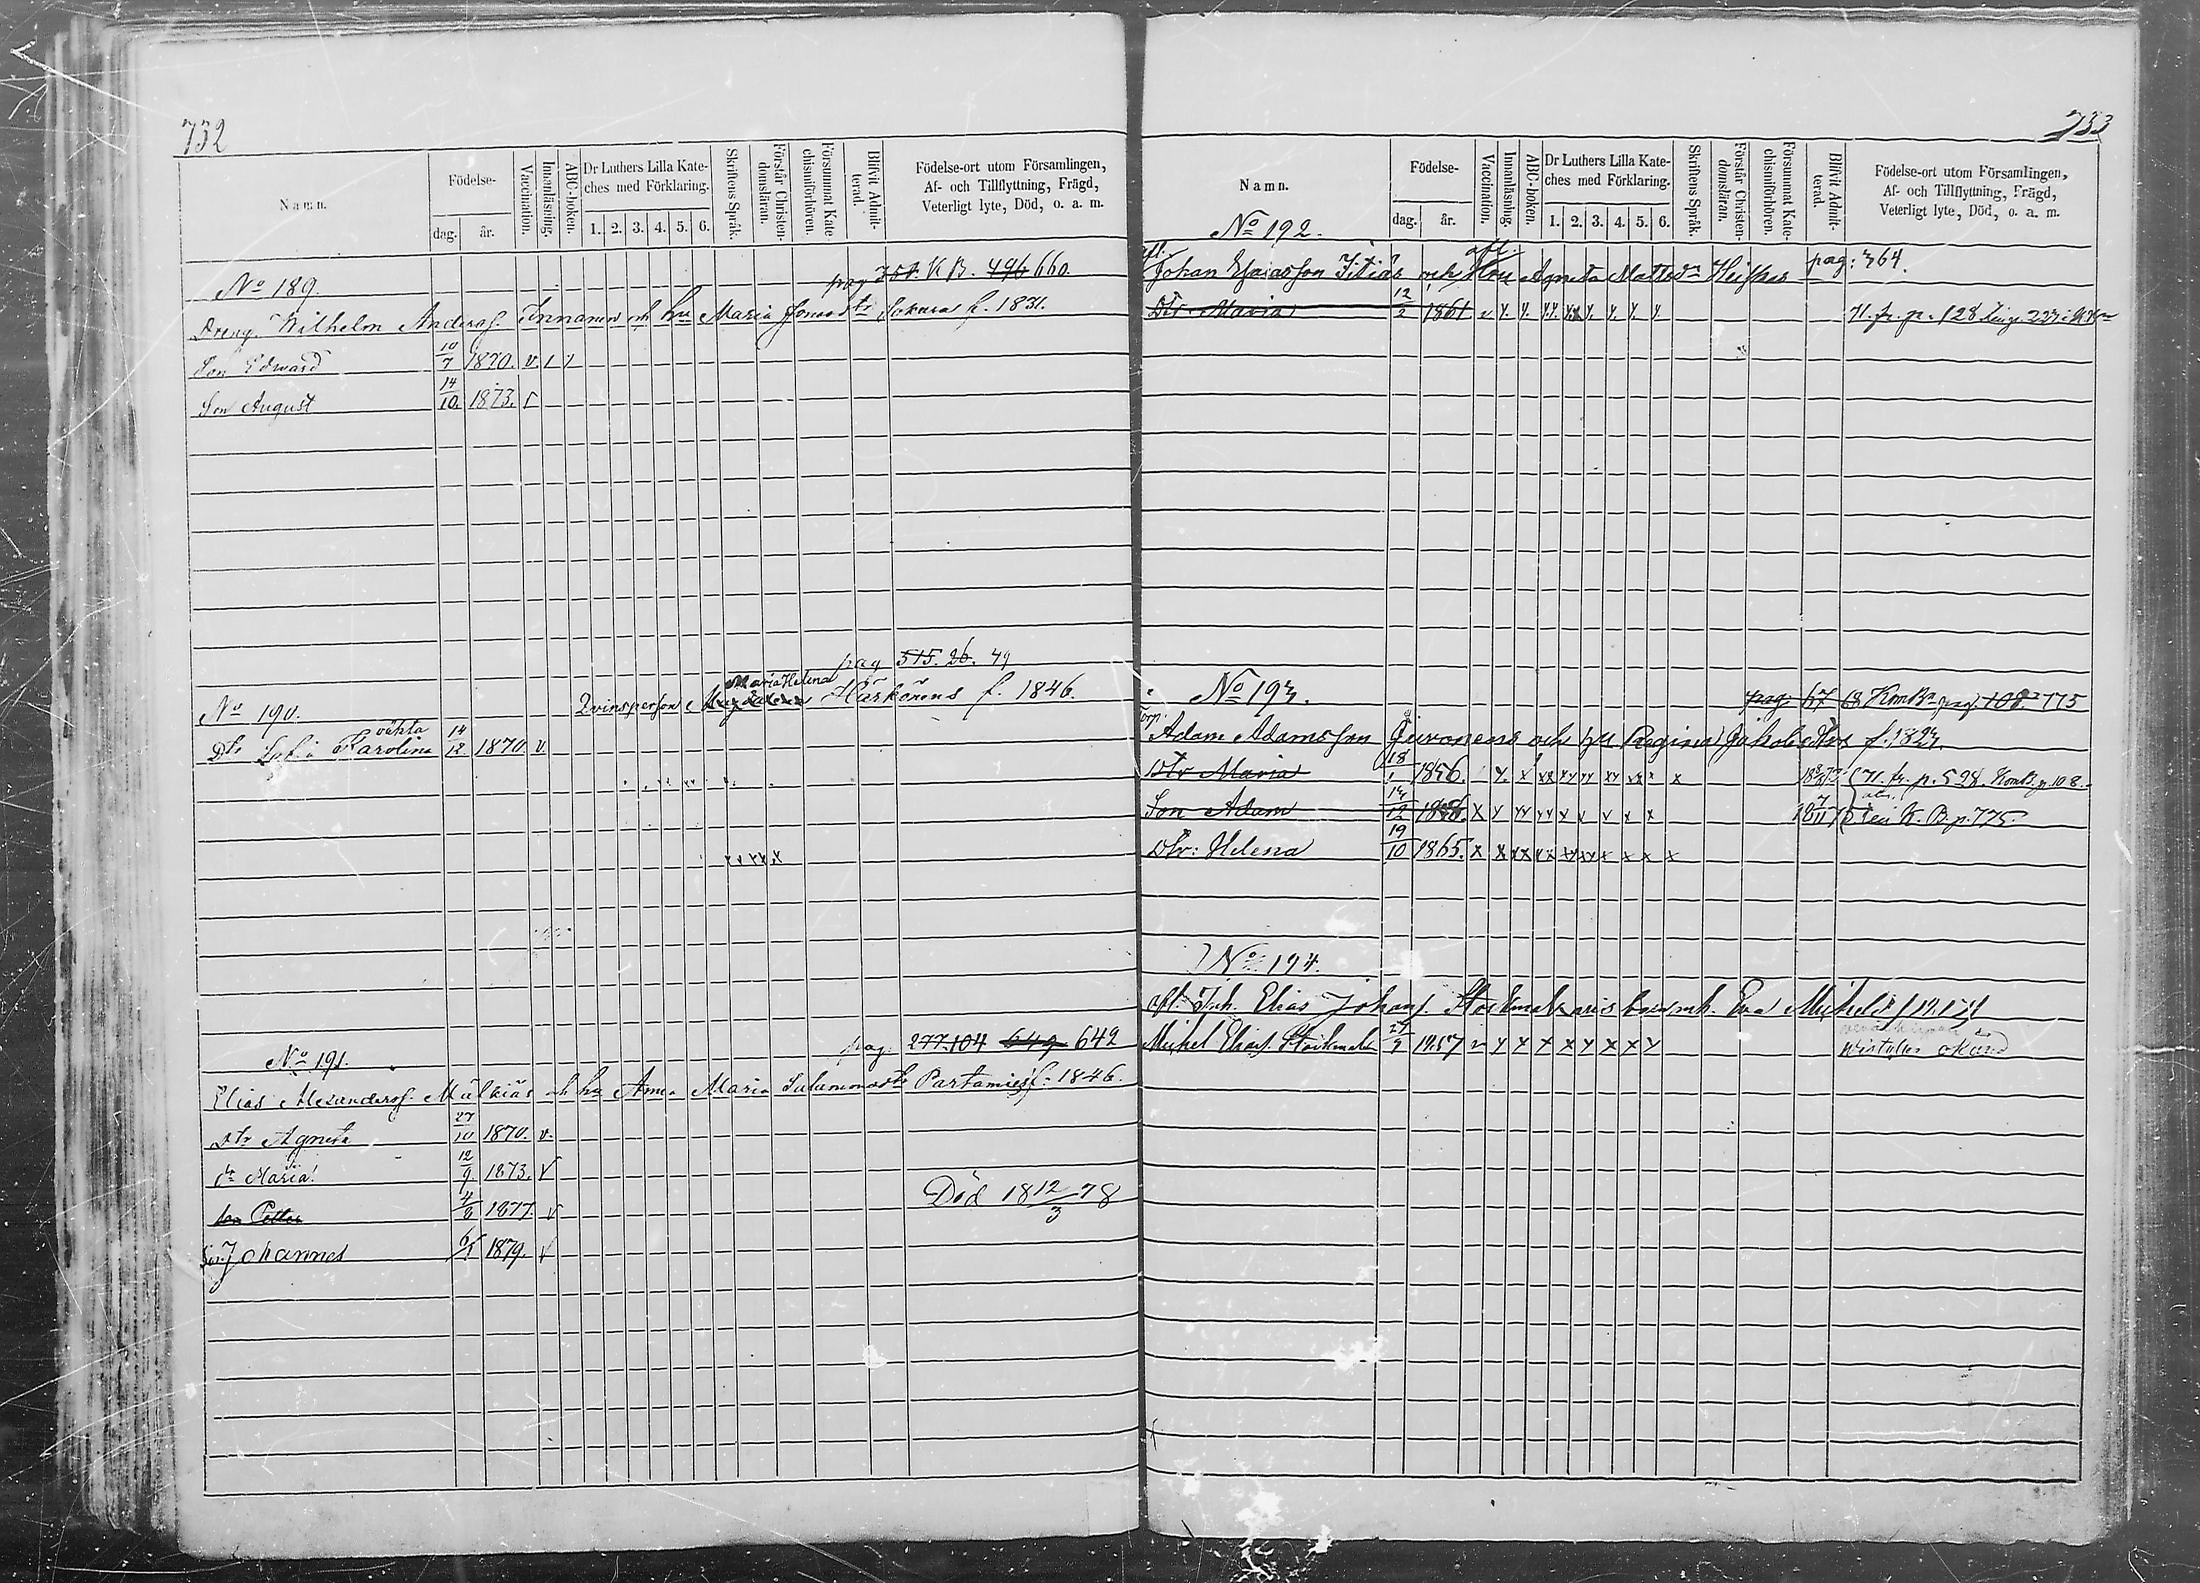 732
Namn.
Födelse-
dag.
år.
Vaccination.
Innanläsning.
ABC-boken.
Dr Luthers Lilla Kate-
ches med Förklaring.
1. 2. 3. 4. 5. 6.
Skriftens Språk.
Förstår Christen-
domsläran.
Försummat Kate-
chismiförhören.
Blifvit Admit-
terad.
Födelse-ort utom Församlingen,
Af- och Tillflyttning, Frägd,
Veterligt lyte, Död, o. a. m.
No 189.
pag 357. K B. 496 660.
Dreng. Wilhelm Andersf. Innanen och hu Maria Jonasdtr Sokura f. 1831.
Son Edward 10/7 1870. v. 1 y
Son August 14/10. 1873. v
pag 515. 26. 49
No 190.
Maria Helena
Qvinsperson Magdalena Härkönens f. 1846.
oäkta
Dtr Sofia Karolina 14/12 1870 v.
No 191.
pag. 277. 104 649 642
Elias Alexandersf. Mülkiäs och hu Anna Maria Salamonsdtr Partamies f. 1846.
Dtr Agneta 27/10 1870. v.
dr Maria! 12/9 1873. v
son Petter 4/8 1877. v
Död 18 12/3 78
Son Johannes 6/1 1879. v
733
Namn.
Födelse-
dag.
år.
Vaccination.
Innanläsning.
ABC-boken.
Dr Luthers Lilla Kate-
ches med Förklaring.
1. 2. 3. 4. 5. 6.
Skriftens Språk.
Förstår Christen-
domsläran.
Försummat Kate-
chismiförhören.
Blifvit Admit-
terad.
Födelse-ort utom Församlingen,
Af- och Tillflyttning, Frägd,
Veterligt lyte, Död, o. a. m.
No 192.
Johan Esaiasson och Hon Agneta Mattsdr pag: 364.
Dtr Maria 12/2 1861
71. fr. p. 128
No 193.
pag. 67 68 KomBn pag. 108 775
Adam Adamsson och hu Regina Jakobsdtr f. 1823.
Dtr Maria 18 1856.
71. fr. p. 528. KomB. p. 108.
Son Adam 12
K. B. p. 775.
Dtr: Helena 19/10 1865.
No 194.
afl. Inh. Elias Johansf.
Michel Eliasf. 1857
okänd